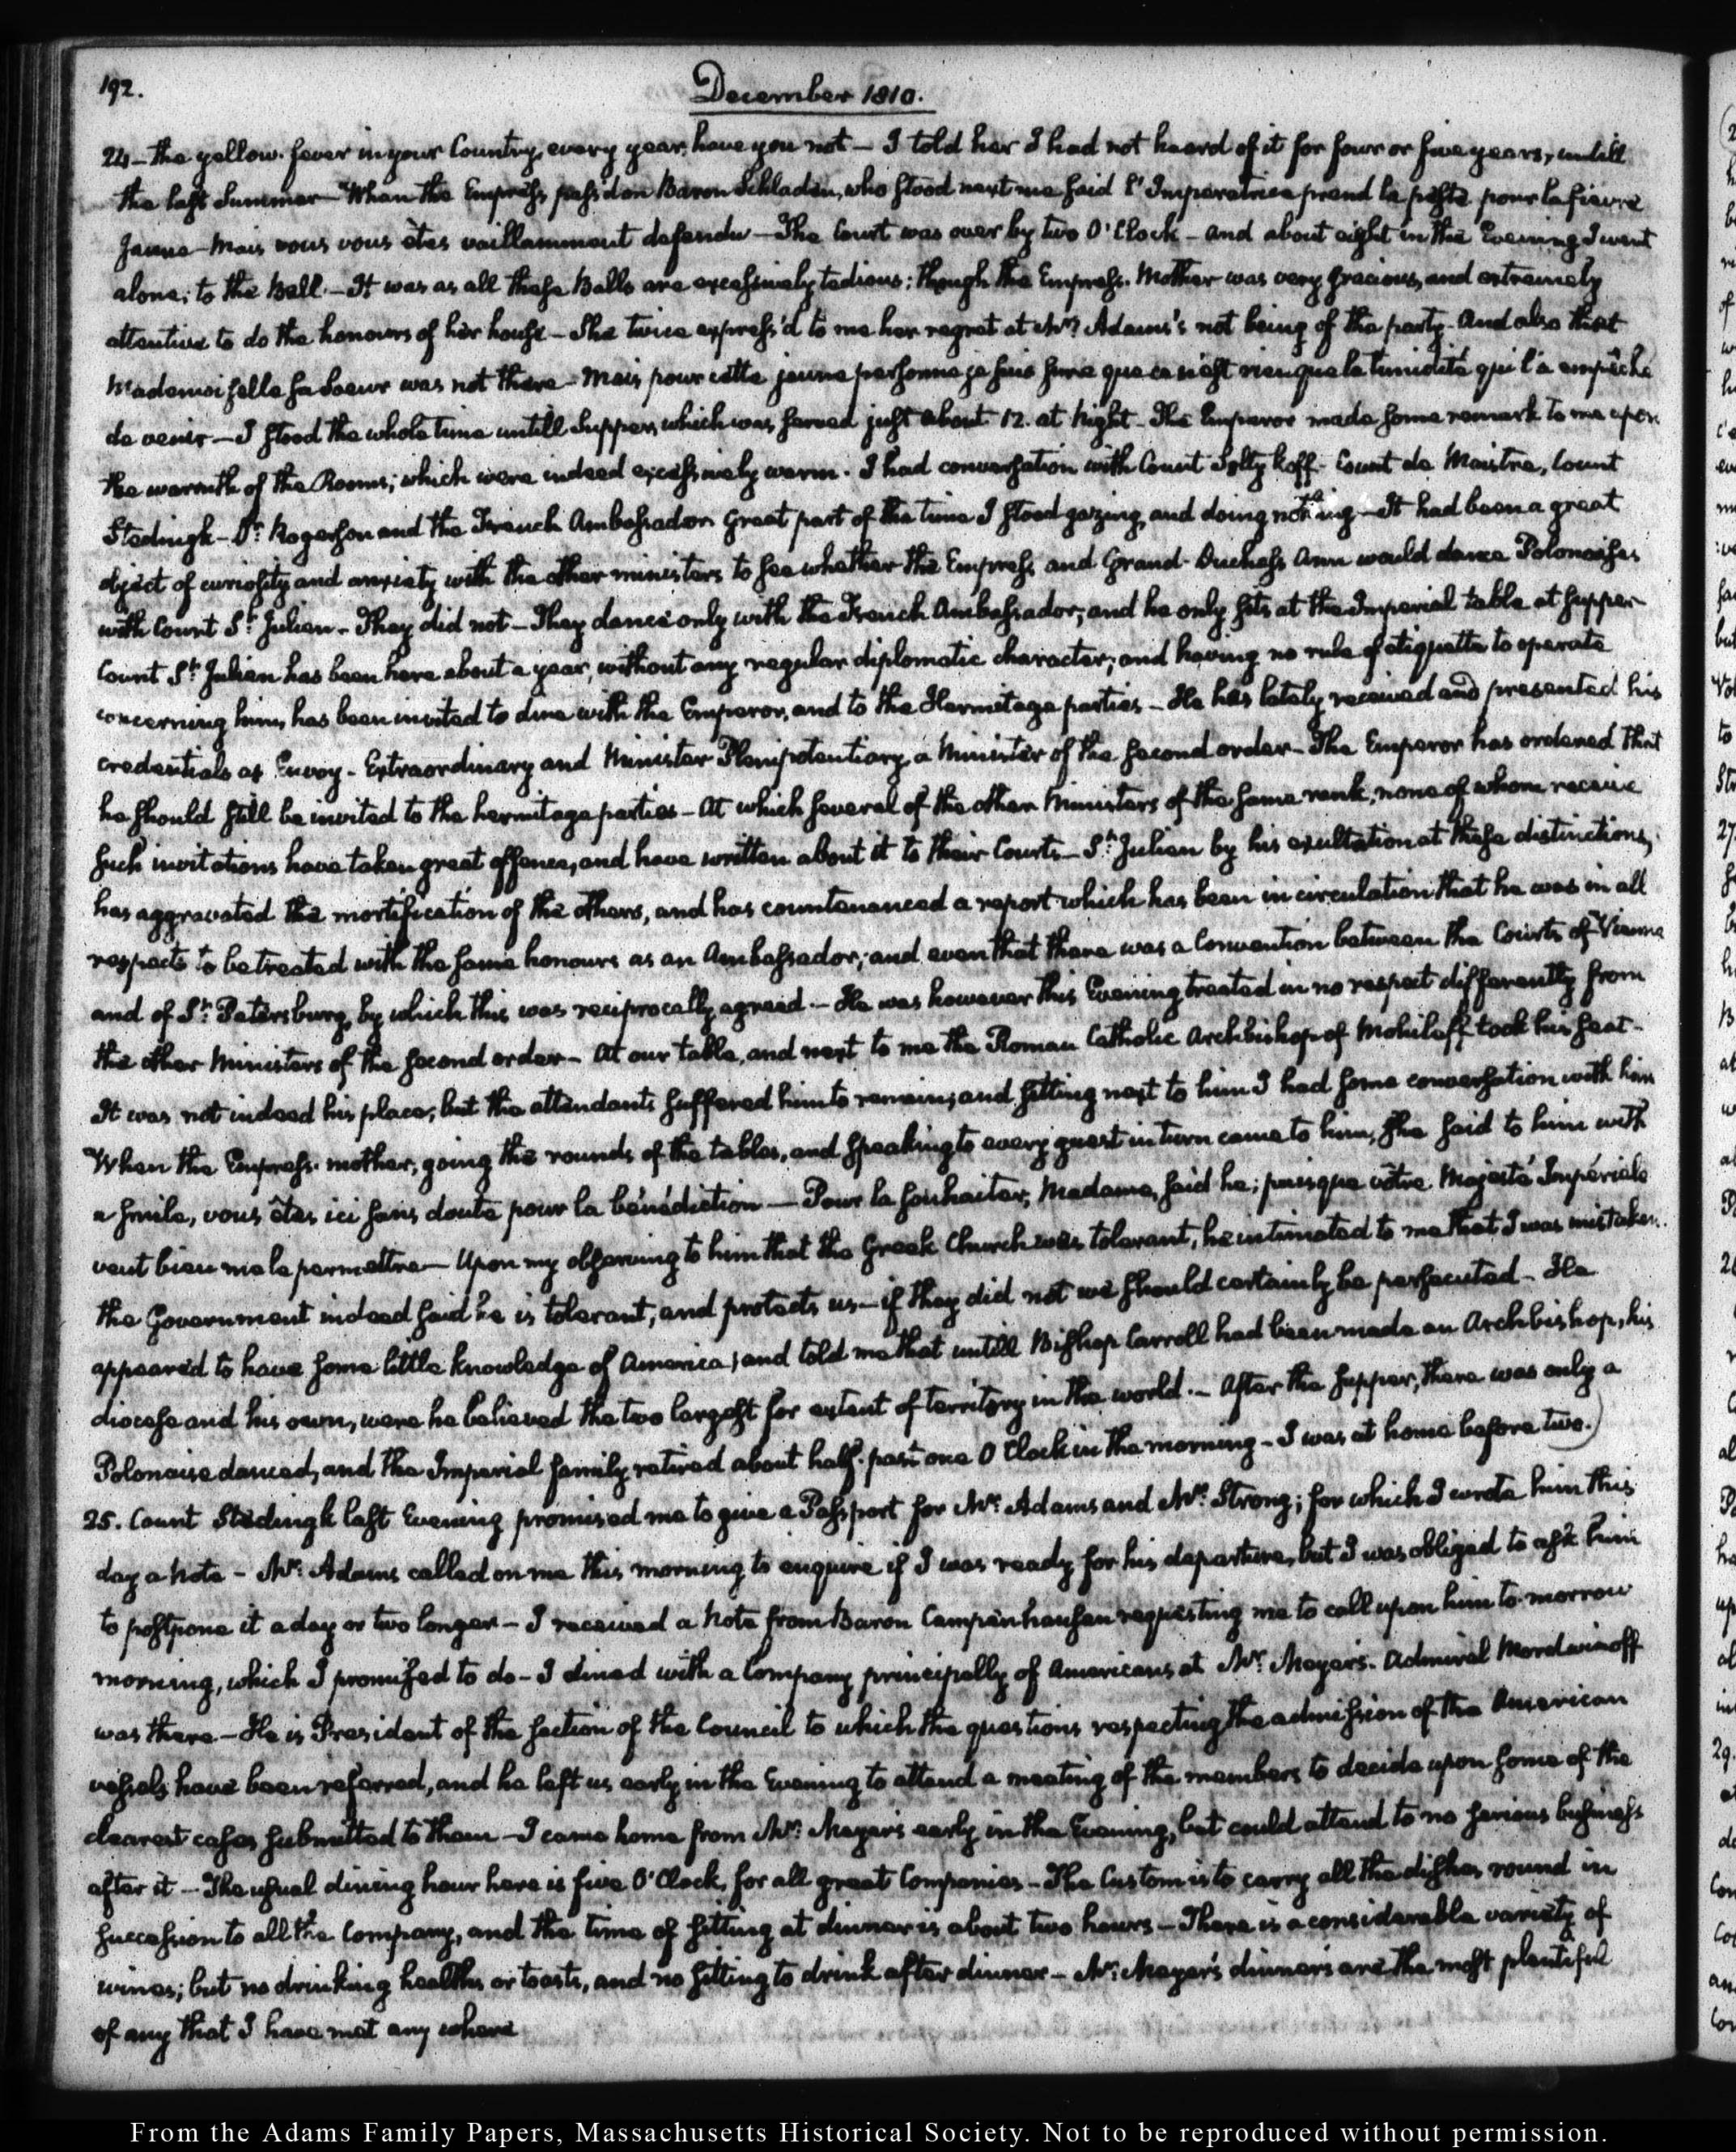 192.
December 1810.
24 - the yellow fever in your Country, every year, have you not — I told her I had not heard of it for four or five years, untill
the last Summer — When the Empress pass'd on Baron Schladen, who stood next me said l'Imperatrice prend la peste pour la fievre
Jaune — Mais vous vous êtes vaillamment defendu — The Court was over by two O'Clock — and about eight in the Evening I went
alone; to the Ball. — It was as all these Balls are excessively tedious: though the Empress-Mother was very gracious, and extremely
attentive to do the honours of her house — She twice express'd to me her regret at Mrs. Adams's not being of the party. And also that
Mademoiselle sa Soeur was not there — Mais pour cette jeune personne je suis sure que ce n'est rien que la timidité qui l'a empêché
de venir — I stood the whole time untill Supper, which was served just about 12. at Night — The Emperor made some remark to me upon
the warmth of the Rooms; which were indeed excessively warm. I had conversation with Count Soltykoff — Count de Maistre, Count
Stedingk — Dr. Rogerson and the French Ambassador. Great part of the time I stood gazing, and doing nothing — It had been a great
object of curiosity and anxiety with the other ministers to see whether the Empress, and Grand-Duchess Ann would dance Polonaises
with Count St. Julien — They did not — They dance only with the French Ambassador; and he only sits at the Imperial table at supper —
Count St. Julien has been here about a year, without any regular diplomatic character; and having no rule of etiquette to operate
concerning him, has been invited to dine with the Emperor, and to the Hermitage parties — He has lately received and presented his
credentials as Envoy-Extraordinary and Minister Plenipotentiary, a Minister of the second order — The Emperor has ordered that
he should still be invited to the hermitage parties — At which several of the other Ministers of the same rank, none of whom receive
such invitations have taken great offence, and have written about it to their Courts — St. Julien by his exultation at these distinctions,
has aggravated the mortification of the others, and has countenanced a report which has been in circulation that he was in all
respects to be treated with the same honours as an Ambassador; and even that there was a Convention between the Courts of Vienna
and of St. Petersburg, by which this was reciprocally agreed. — He was however this Evening treated in no respect differently from
the other Ministers of the second order — At our table, and next to me the Roman Catholic Archbishop of Mohileff took his seat —
It was not indeed his place; but the attendants suffered him to remain; and sitting next to him I had some conversation with him
When the Empress-mother, going the rounds of the tables, and speaking to every guest in turn came to him, she said to him with
a smile, vous êtes ici sans doute pour la bénédiction — Pour la souhaiter, Madame, said he; puisque vôtre Majesté Impériale
veut bien me le permettre — Upon my observing to him that the Greek Church was tolerant, he intimated to me that I was mistaken.
the Government indeed said he is tolerant, and protects us — if they did not we should certainly be persecuted — He
appeared to have some little knowledge of America; and told me that untill Bishop Carroll had been made an Archbishop, his
diocese and his own, were he believed the two largest for extent of territory in the world. — After the supper, there was only a
Polonaise danced, and the Imperial family retired about half-past one O'Clock in the morning — I was at home before two.
25. Count Stedingk last Evening promised me to give a Passport for Mr. Adams and Mr. Strong; for which I wrote him this
day a Note — Mr. Adams called on me this morning to enquire if I was ready for his departure, but I was obliged to ask him
to postpone it a day or two longer — I received a Note from Baron Campenhausen requesting me to call upon him to-morrow
morning, which I promised to do — I dined with a Company principally of Americans at Mr. Meyer's. Admiral Mordwinoff
was there — He is President of the section of the Council to which the questions respecting the admission of the American
vessels have been referred, and he left us early in the Evening to attend a meeting of the members to decide upon some of the
clearest cases submitted to them — I came home from Mr. Meyer's early in the Evening, but could attend to no serious business
after it — The usual dining hour here is five O'Clock, for all great Companies — The Custom is to carry all the dishes round in
succession to all the Company, and the time of sitting at dinner is about two hours — There is a considerable variety of
wines; but no drinking healths or toasts, and no sitting to drink after dinner — Mr. Meyer's dinners are the most plentiful
of any that I have met any where
From the Adams Family Papers, Massachusetts Historical Society. Not to be reproduced without permission.